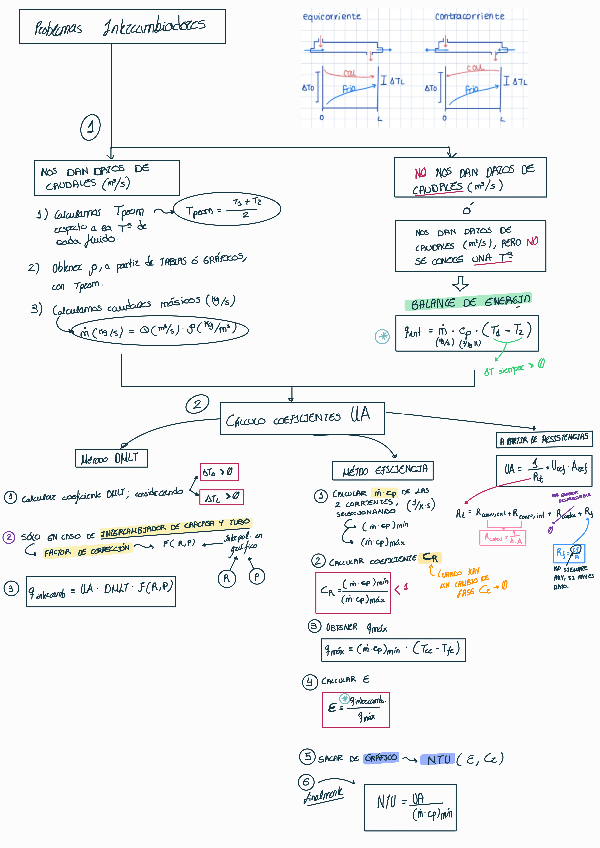 Problemas Intercambiadores
equicorriente
contracorriente
ΔT0
cal
frío
ΔTL
0
L
ΔT0
cal
frío
ΔTL
0
L
1
NOS DAN DATOS DE
CAUDALES (m³/s)
1) Calculamos Tprom
respecto a la Tª de
cada fluido
Tprom = T1 + T2 / 2
2) Obtener ρ, a partir de TABLAS ó GRÁFICOS,
con Tprom.
3) Calculamos caudales másicos (kg/s)
ṁ(kg/s) = Q(m³/s) · ρ(kg/m³)
NO NOS DAN DATOS DE
CAUDALES (m³/s)
Ó
NOS DAN DATOS DE
CAUDALES (m³/s), PERO NO
SE CONOCE UNA Tª
BALANCE DE ENERGÍA
* qint = ṁ · cp · (T1 - T2)
(kg/s)
ΔT siempre > 0
2
CÁLCULO COEFICIENTES UA
Método DMLT
1 Calcular coeficiente DMLT, considerando
ΔT0 > 0
ΔTL > 0
2 SÓLO EN CASO DE INTERCAMBIADOR DE CARCASA Y TUBO
FACTOR DE CORRECCIÓN → F(R,P)
Interpol. en
gráfico
R
P
3 qintercamb = UA · DMLT · F(R,P)
MÉTODO EFICIENCIA
1 CALCULAR ṁ·cp DE LAS
2 CORRIENTES, (J/K·s)
SELECCIONANDO
(ṁ·cp)mín
(ṁ·cp)máx
2 CALCULAR COEFICIENTE CR
CR = (ṁ·cp)mín / (ṁ·cp)máx < 1
CUANDO HAY
UN CAMBIO DE
FASE CR → 0
3 OBTENER qmáx
qmáx = (ṁ·cp)mín · (Tce - Tfe)
4 CALCULAR ε
ε = * qintercamb. / qmáx
5 SACAR DE GRÁFICO → NTU (ε, CR)
6
finalmente
NTU = UA / (ṁ·cp)mín
A PARTIR DE RESISTENCIAS
UA = 1 / Rt = Uref · Aref
Rt = Rconv,ext + Rconv,int + Rcond + Rf
0
NO SIEMPRE
HAY, SI NO DAN
DATO.